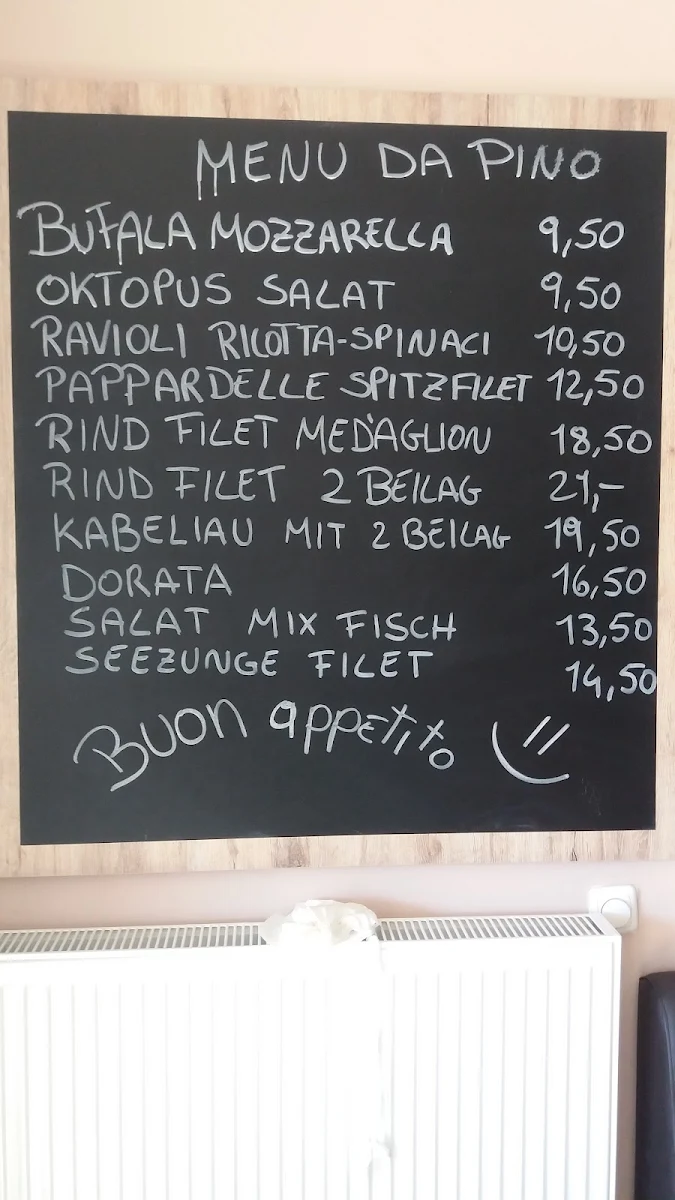 MENU DA PINO
BUFALA MOZZARELLA 9,50
OKTOPUS SALAT 9,50
RAVIOLI RICOTTA-SPINACI 10,50
PAPPARDELLE SPITZFILET 12,50
RIND FILET MED'AGLION 18,50
RIND FILET 2 BEILAG 21,-
KABELIAU MIT 2 BEILAG 19,50
DORATA 16,50
SALAT MIX FISCH 13,50
SEEZUNGE FILET 14,50
Buon appetito